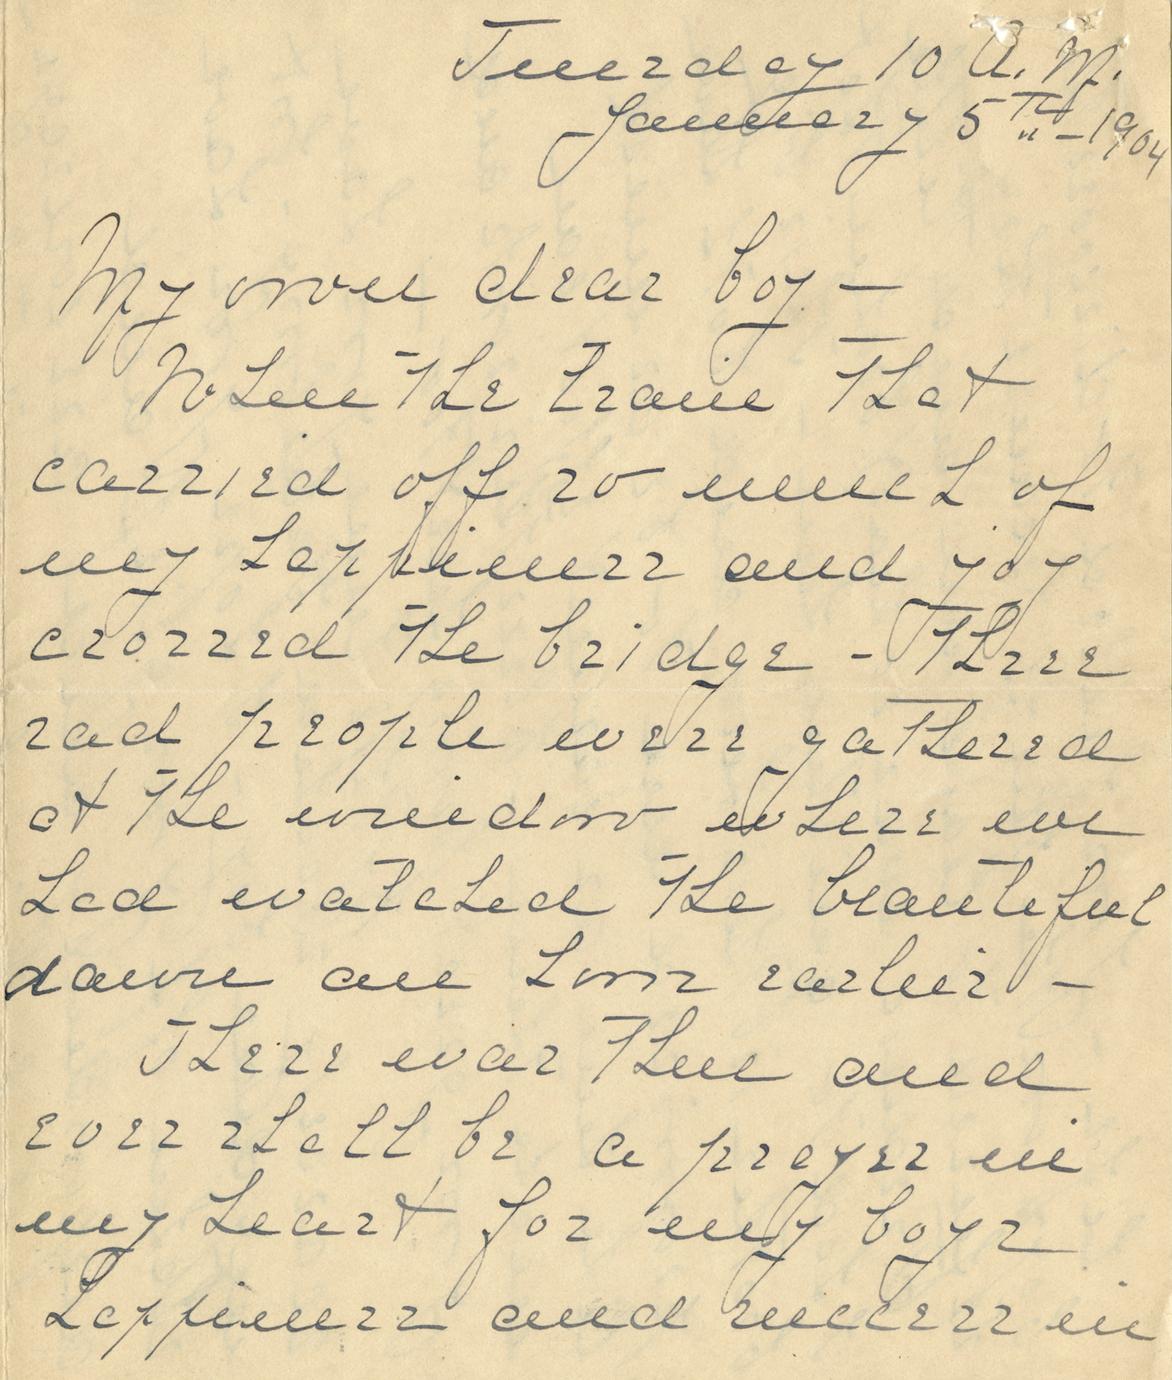 Tuesday 10 A.M.
January 5TH - 1904
My own dear boy -
When the train that
carried off so much of
my happiness and joy
crossed the bridge - three
sad people were gathered
at the window where we
had watched the beautiful
dawn an hour earlier -
There was then and
ever shall be a prayer in
my heart for my boys
happiness and success in